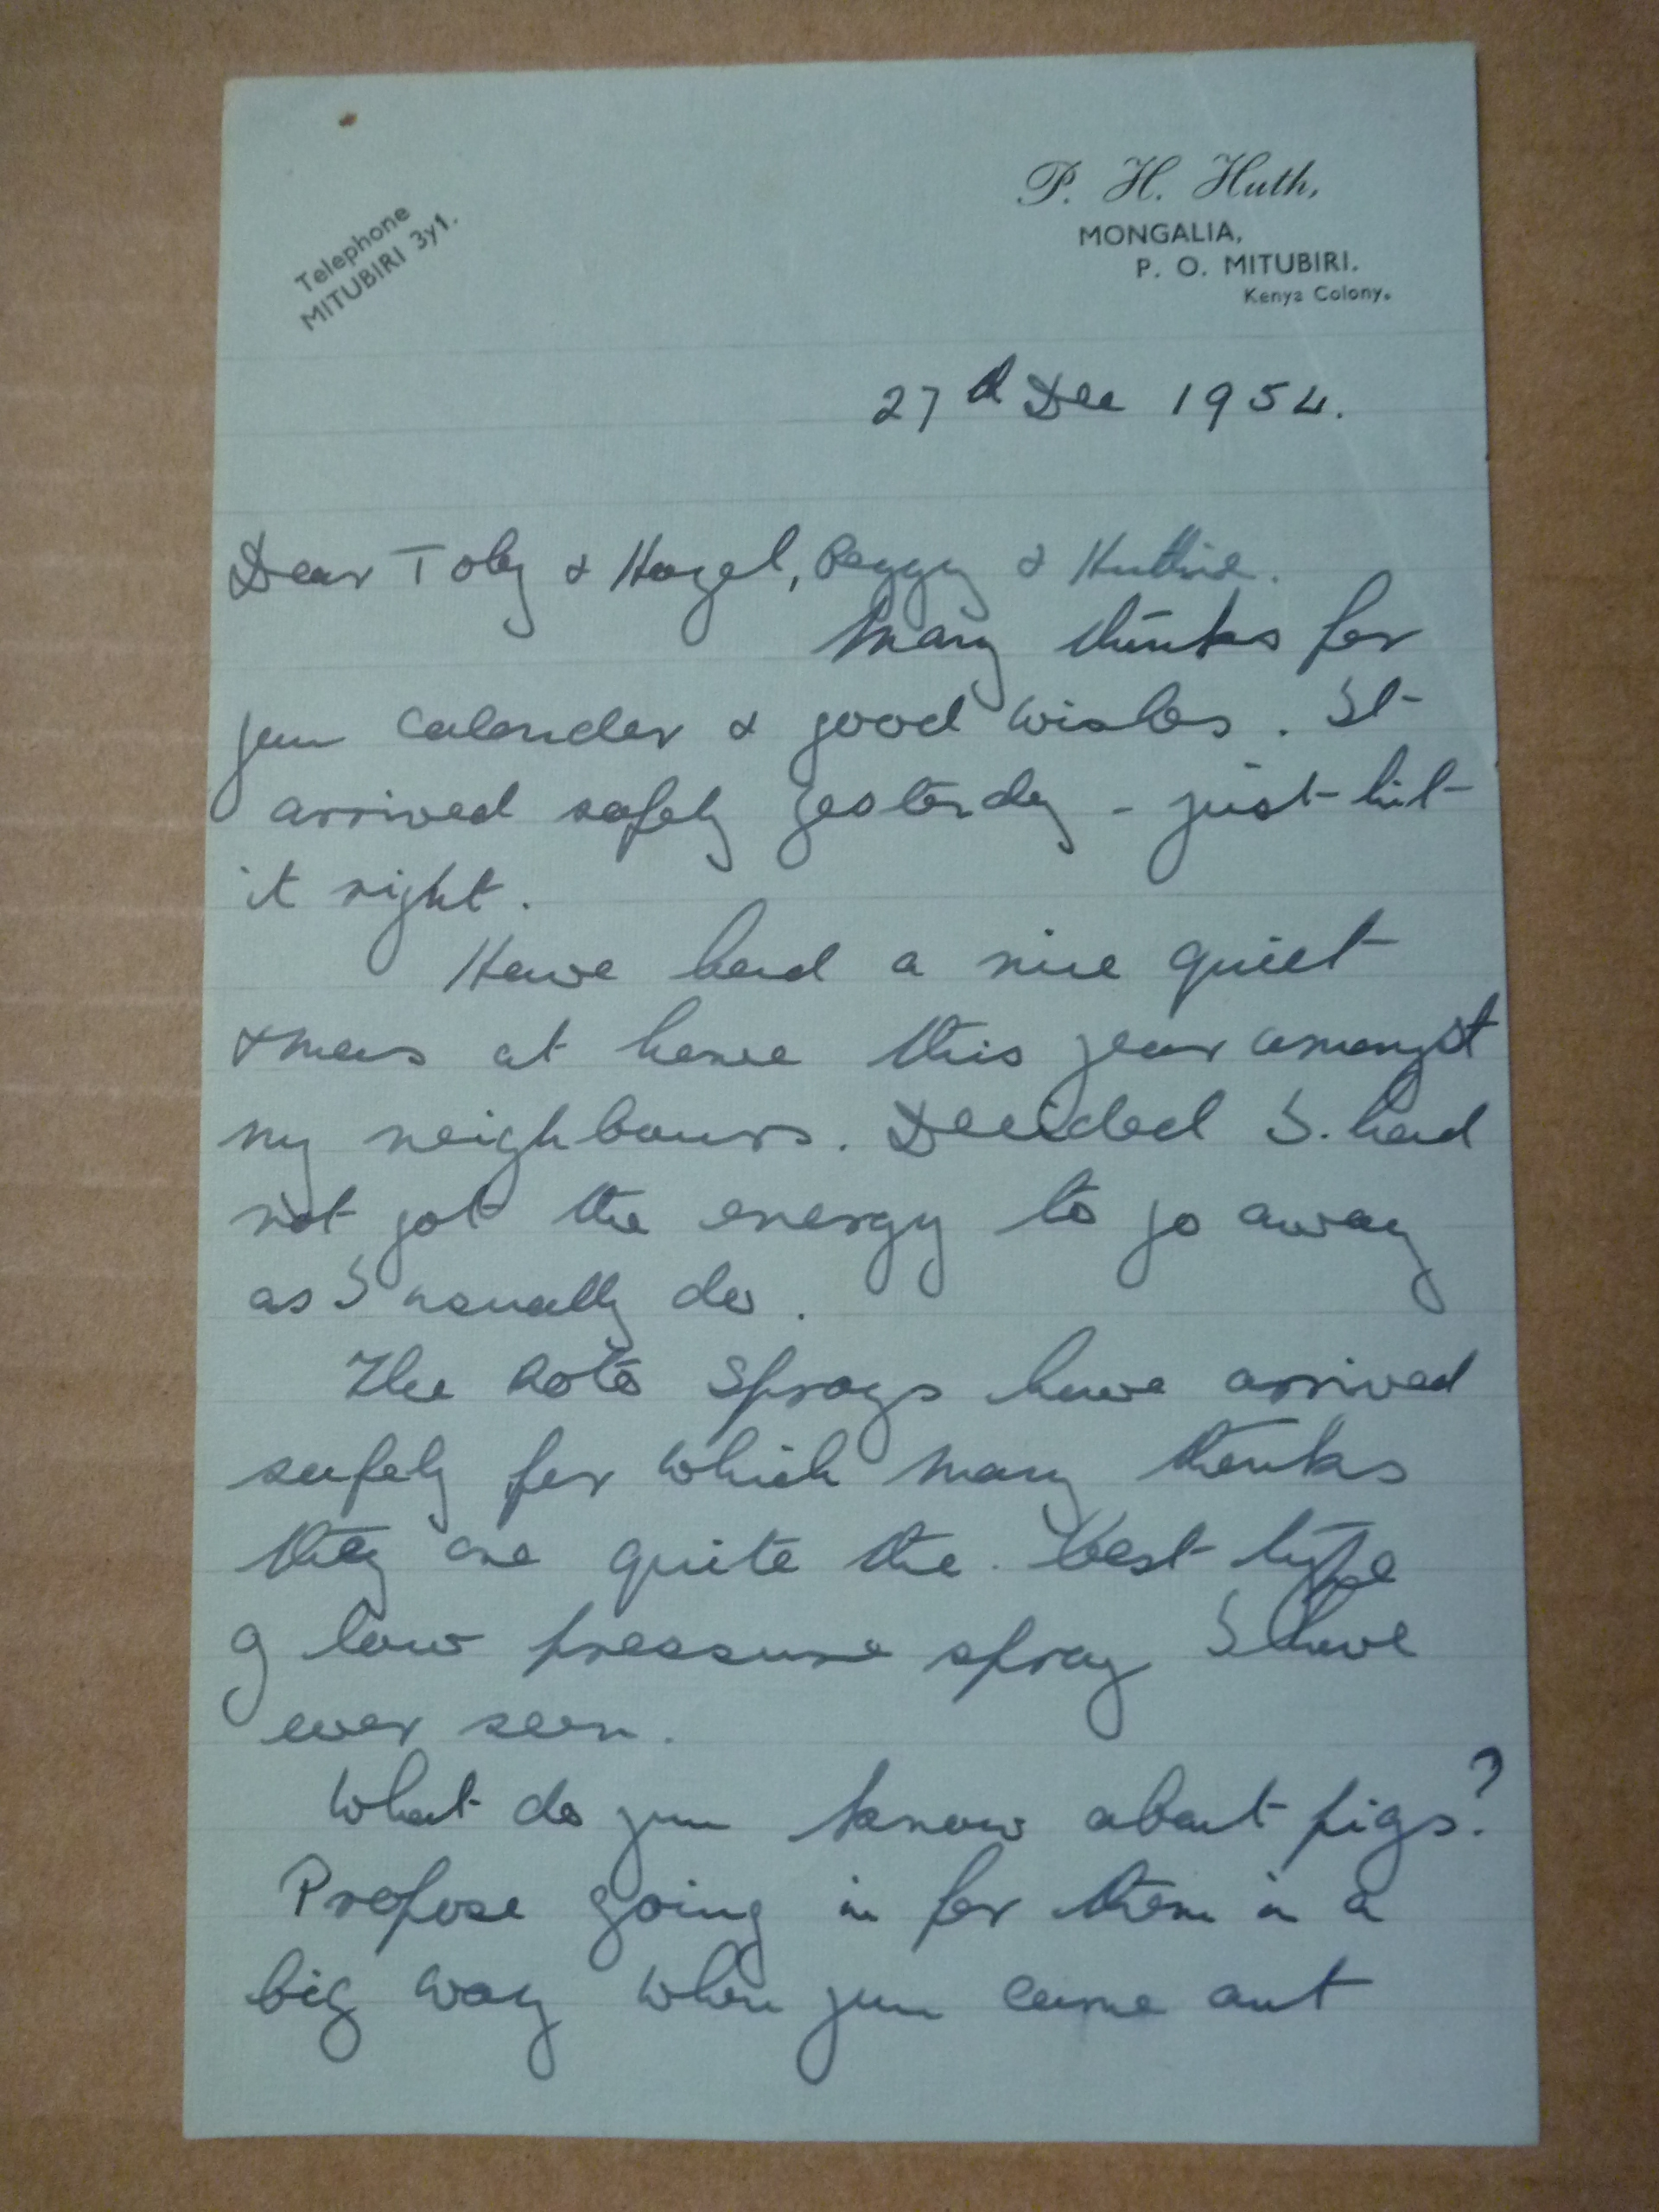 P. H. Huth,
MONGALIA,
P. O. MITUBIRI.
Kenya Colony.
Telephone
MITUBIRI 3y1.
27th Dec 1954.
Dear Toby & Hazel, Peggy & Huthie.
Many thanks for
your calender & good wishes. It
arrived safely yesterday - just hit
it right.
Have had a nice quiet
xmas at home this year amongst
my neighbours. Decided I had
not got the energy to go away
as I usually do.
The Roto Sprays have arrived
safely for which many thanks
they are quite the best type
of low pressure spray I have
ever seen.
What do you know about pigs?
Propose going in for them in a
big way when you come out